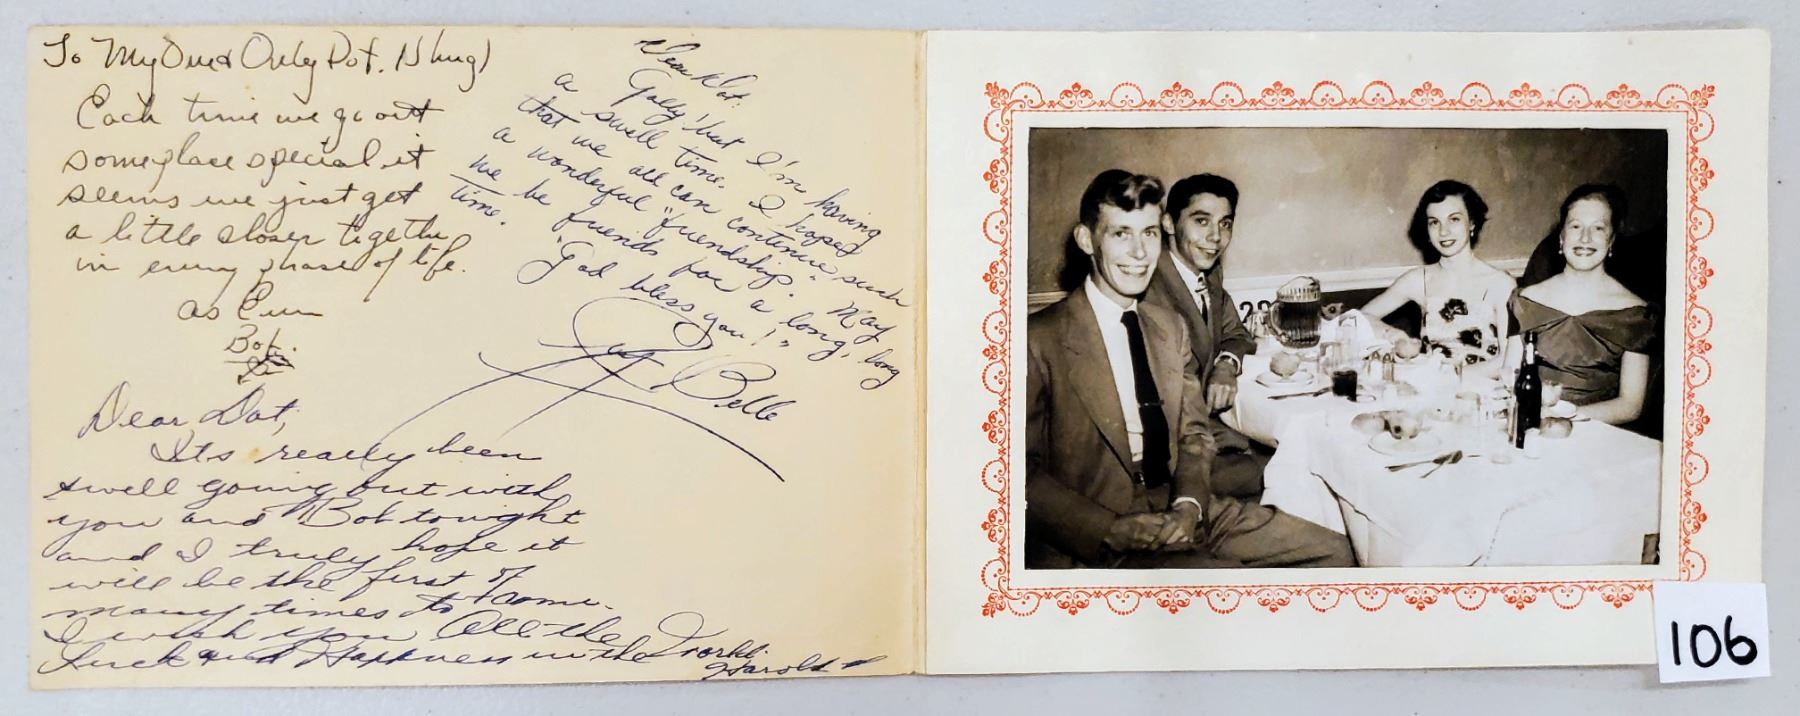 To My One & Only Dot. (Shug)
Each time we go out
someplace special it
seems we just get
a little closer together
in every phase of life.
as Ever
Bob.
Dear Dot:
Golly! but I'm having
a swell time. I hoped
that we all can continue such
a wonderful "friendship." May
we be friends for a long, long
time.
"God bless you!"
Belle
Dear Dot,
Its really been
swell going out with
you and Bob tonight
and I truly hope it
will be the first of
many times to come.
I wish you All the
Luck and Happiness in the World.
Harold
22
106